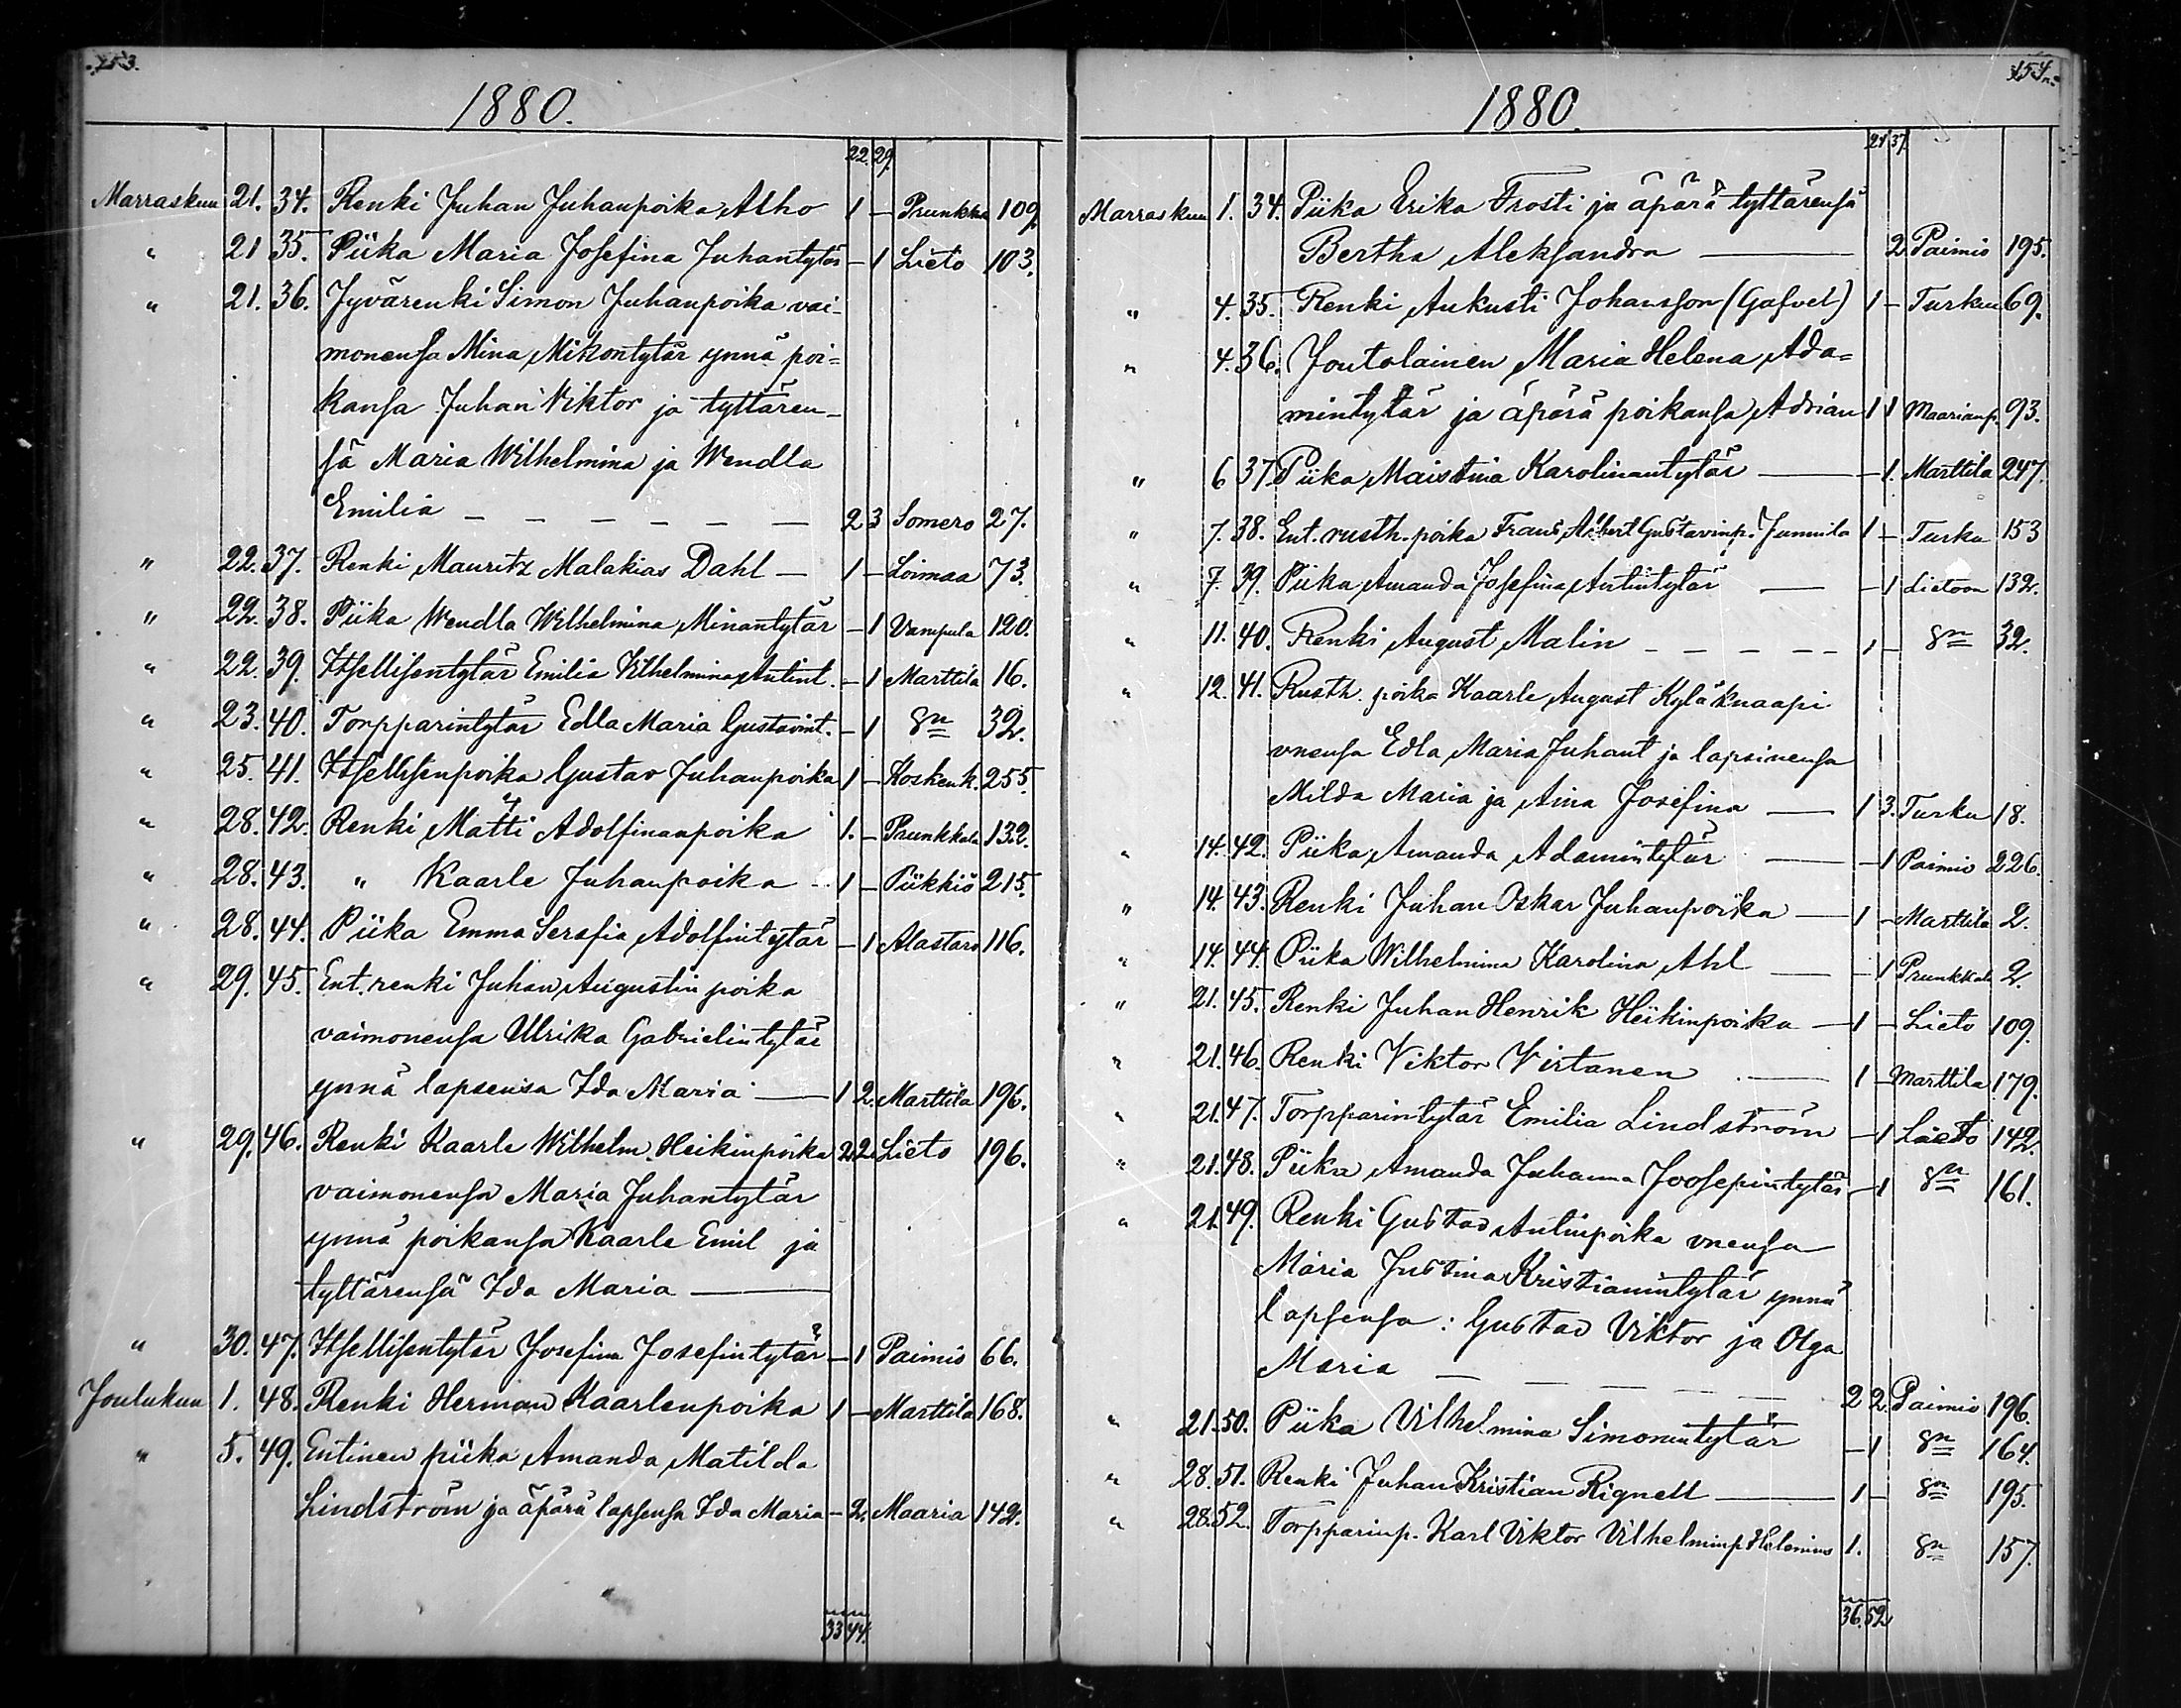 153.
1880.
22. 29.
Marraskuu 21. 34. Renki Juhan Juhanpoika Alho 1 – Prunkka 109.
" 21 35. Piika Maria Josefina Juhantytär – 1 Lieto 103.
" 21. 36. Jyvärenki Simon Juhanpoika vai-
monensa Mina Mikontytär ynnä poi=
kansa Juhan Viktor ja tyttären-
sä Maria Wilhelmina ja Wendla
Emilia – – – – – – 2 3 Somero 27.
" 22. 37. Renki Mauritz Malakias Dahl – 1 – Loimaa 73.
" 22. 38. Piika Wendla Wilhelmina Minantytär – 1 Vampula 120.
" 22. 39. Itsellisentytär Emilia Vilhelmina Antint. – 1 Marttila 16.
" 23. 40. Torpparintytär Edla Maria Gustavint. – 1 Sn 32.
" 25. 41. Itsellisenpoika Gustav Juhanpoika 1 – Koskenk. 255.
" 28. 42. Renki Matti Adolfinanpoika 1. – Prunkkala 132.
" 28. 43. " Kaarle Juhanpoika – 1 – Piikkiö 215.
" 28. 44. Piika Emma Serafia Adolfintytär – 1 Alastaro 116.
" 29. 45. Ent. renki Juhan Augustin poika
vaimonensa Ulrika Gabrielintytär
ynnä lapsensa Ida Maria — 1 2. Marttila 196.
" 29. 46. Renki Kaarle Wilhelm Heikinpoika 2. 2. Lieto 196.
vaimonensa Maria Juhantytär
ynnä poikansa Kaarle Emil ja
tyttärensä Ida Maria —
" 30. 47. Itsellisentytär Josefina Josefintytär – 1 Paimio 66.
Joulukuu 1. 48. Renki Herman Kaarlenpoika 1 – Marttila 168.
" 5. 49. Entinen piika Amanda Matilda
Lindström ja äpärä lapsensa Ida Maria – 2. Maaria 142.
33 44.
154.
1880.
27 37.
Marraskuu 1. 34. Piika Erika Frosti ja äpärä tyttärensä
Bertha Aleksandra — 2 Paimio 195.
" 4. 35. Renki Aukusti Johansson (Gafvel) 1 – Turkuu 69.
" 4. 36. Joutolainen Maria Helena Ada=
mintytär ja äpärä poikansa Adrian 1 1 Maarianp. 93.
" 6 37. Piika Maistina Karolinantytär — – 1. Marttila 247.
" 7. 38. Ent. rusth. poika Frans Albert Gustavinp. Junnila 1 – Turku 153
" 7. 39. Piika Amanda Josefina Antintytär — – 1 Lietoon 132.
" 11. 40. Renki August Malin – – – – – 1 – Sn 32.
" 12. 41. Rusth. poika Kaarle August Kyläknaapi
vnensa Edla Maria Juhant ja lapsinensa
Milda Maria ja Aina Josefina — 1 3. Turku 18.
" 14. 42. Piika Amanda Adamintytär — – 1 Paimio 226.
" 14. 43. Renki Juhan Oskar Juhanpoika — 1 – Marttila 2.
" 14. 44. Piika Wilhelmina Karolina Ahl — – 1 Prunkkala 2.
" 21. 45. Renki Juhan Henrik Heikinpoika — 1 – Lieto 109.
" 21. 46. Renki Viktor Virtanen — 1 – Marttila 179.
" 21. 47. Torpparintytär Emilia Lindström – 1 Lieto 142.
" 21. 48. Piika Amanda Juhanna Joosepintytär – 1 Sn 161.
" 21. 49. Renki Gustav Antinpoika vnensa
Maria Justina Kristianintytär ynnä
lapsensa: Gustav Viktor ja Olga
Maria – – – – – 2 2. Paimio 196.
" 21. 50. Piika Vilhelmina Simonintytär – 1 Sn 164.
" 28. 51. Renki Juhan Kristian Rignell — 1 – Sn 195.
" 28. 52. Torpparinp. Karl Viktor Vilhelminp. Helenius 1. Sn 157.
36. 52